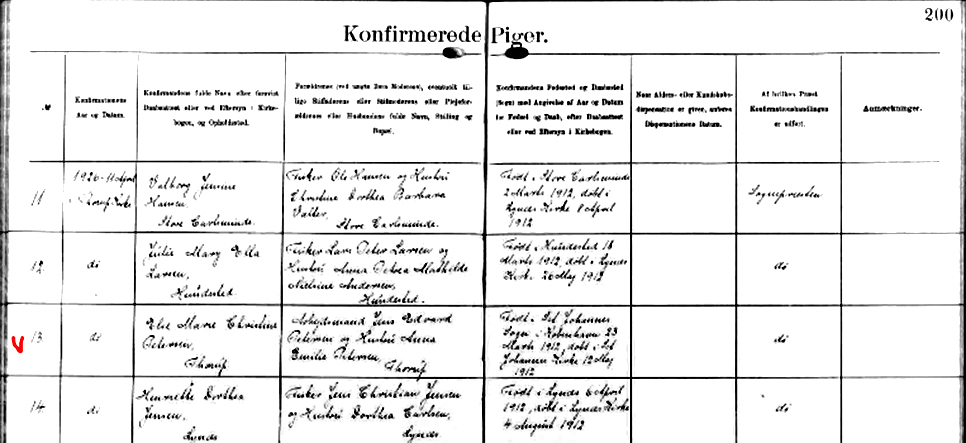 200
Konfirmerede Piger.
№
Konfirmationens
Aar og Datum.
Konfirmandens fulde Navn efter forevist
Daabsattest eller ved Eftersyn i Kirke-
bogen, og Opholdssted.
Forældrenes (ved uægte Børn Moderens), eventuelt til-
lige Stiffaderens eller Stifmoderens eller Plejefor-
ældrenes eller Husbondens fulde Navn, Stilling og
Bopæl.
Konfirmandens Fødested og Daabssted
(Sogn) med Angivelse af Aar og Datum
for Fødsel og Daab, efter Daabsattest
eller ved Eftersyn i Kirkebogen.
Naar Alders- eller Kundskabs-
dispensation er givet, anføres
Dispensationens Datum.
Af hvilken Præst
Konfirmationshandlingen
er udført.
Anmærkninger.
11
1926 - 11 April
Thorup Kirke
Valborg Jensine
Hansen
Store Carlsminde.
Fisker Ole Hansen og Hustru
Christine Dorthea Barbara
Store Carlsminde.
Født i Store Carlsminde
2 Marts 1912, døbt i
Lynæs Kirke 8 April
1912
Sognepræsten
12
do
Julie Mary Ella
Larsen,
Hundested.
Fisker Lars Peter Larsen og
Hustru Anna Petrea Mathilde
Nielsine Andersen,
Hundested.
Født i Hundested 18
Marts 1912, døbt i Lynæs
Kirke 26 Maj 1912
do
13
do
Else Marie Christine
Petersen,
Thorup
Arbejdsmand Jens Edvard
Petersen og Hustru Anna
Emilie Petersen,
Thorup
Født i Sct Johannes
Sogn i København 23
Marts 1912, døbt i Sct
Johannes Kirke 12 Maj
1912
do
14
do
Henriette Dorthea
Jensen,
Lynæs
Fisker Jens Christian Jensen
og Hustru Dorthea Carlsen,
Lynæs
Født i Lynæs 6 April
1912, døbt i Lynæs Kirke
4 August 1912
do